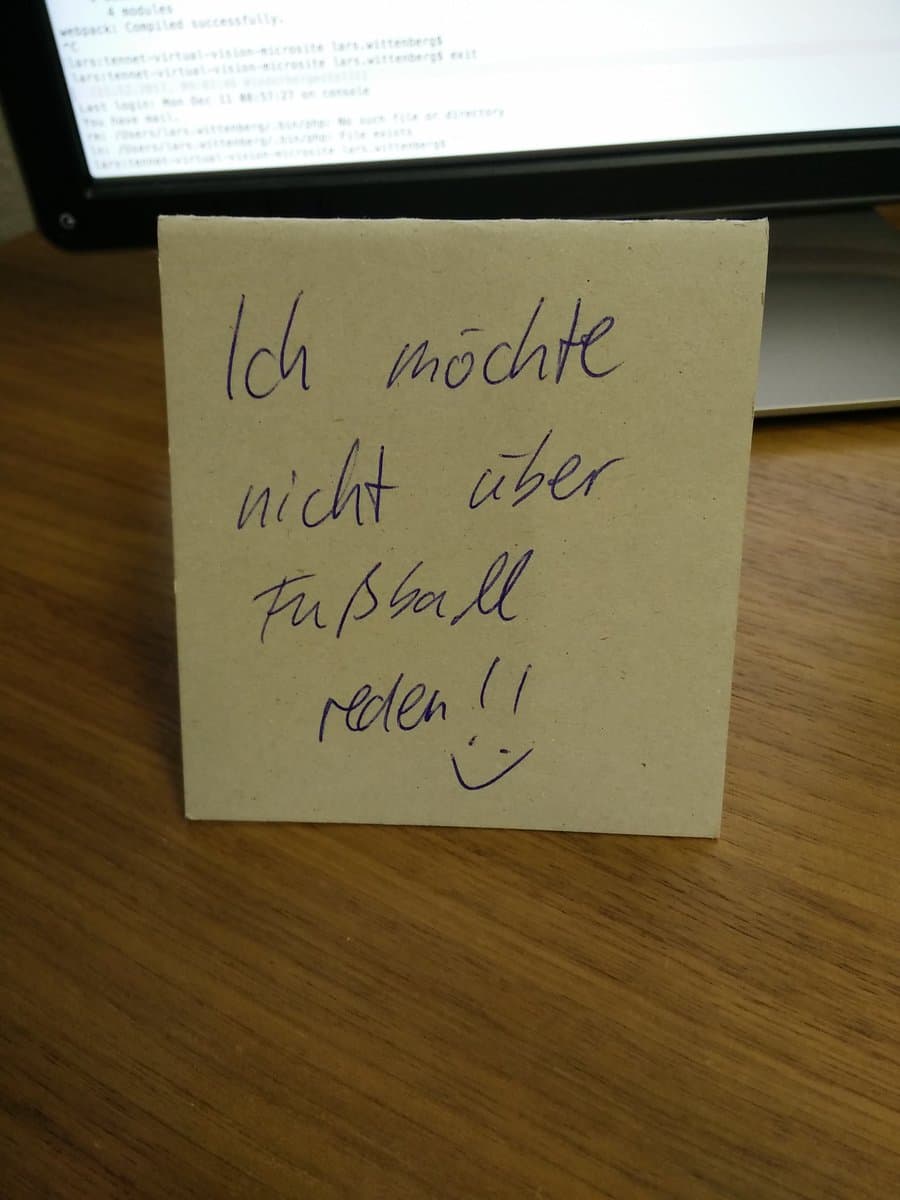 4 modules
webpack: Compiled successfully.
^C
lars:tennet-virtual-vision-microsite lars.wittenberg$
lars:tennet-virtual-vision-microsite lars.wittenberg$ exit
Last login: Mon Dec 11 08:57:27 on console
You have mail.
rm: /Users/lars.wittenberg/.bin/php: No such file or directory
ln: /Users/lars.wittenberg/.bin/php: File exists
lars:tennet-virtual-vision-microsite lars.wittenberg$
Ich möchte
nicht über
Fußball
reden!!